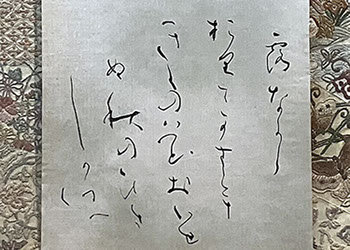 露なから
折里てかささむ
きくのはなおいせ
ぬ秋のひさ
しかるへく